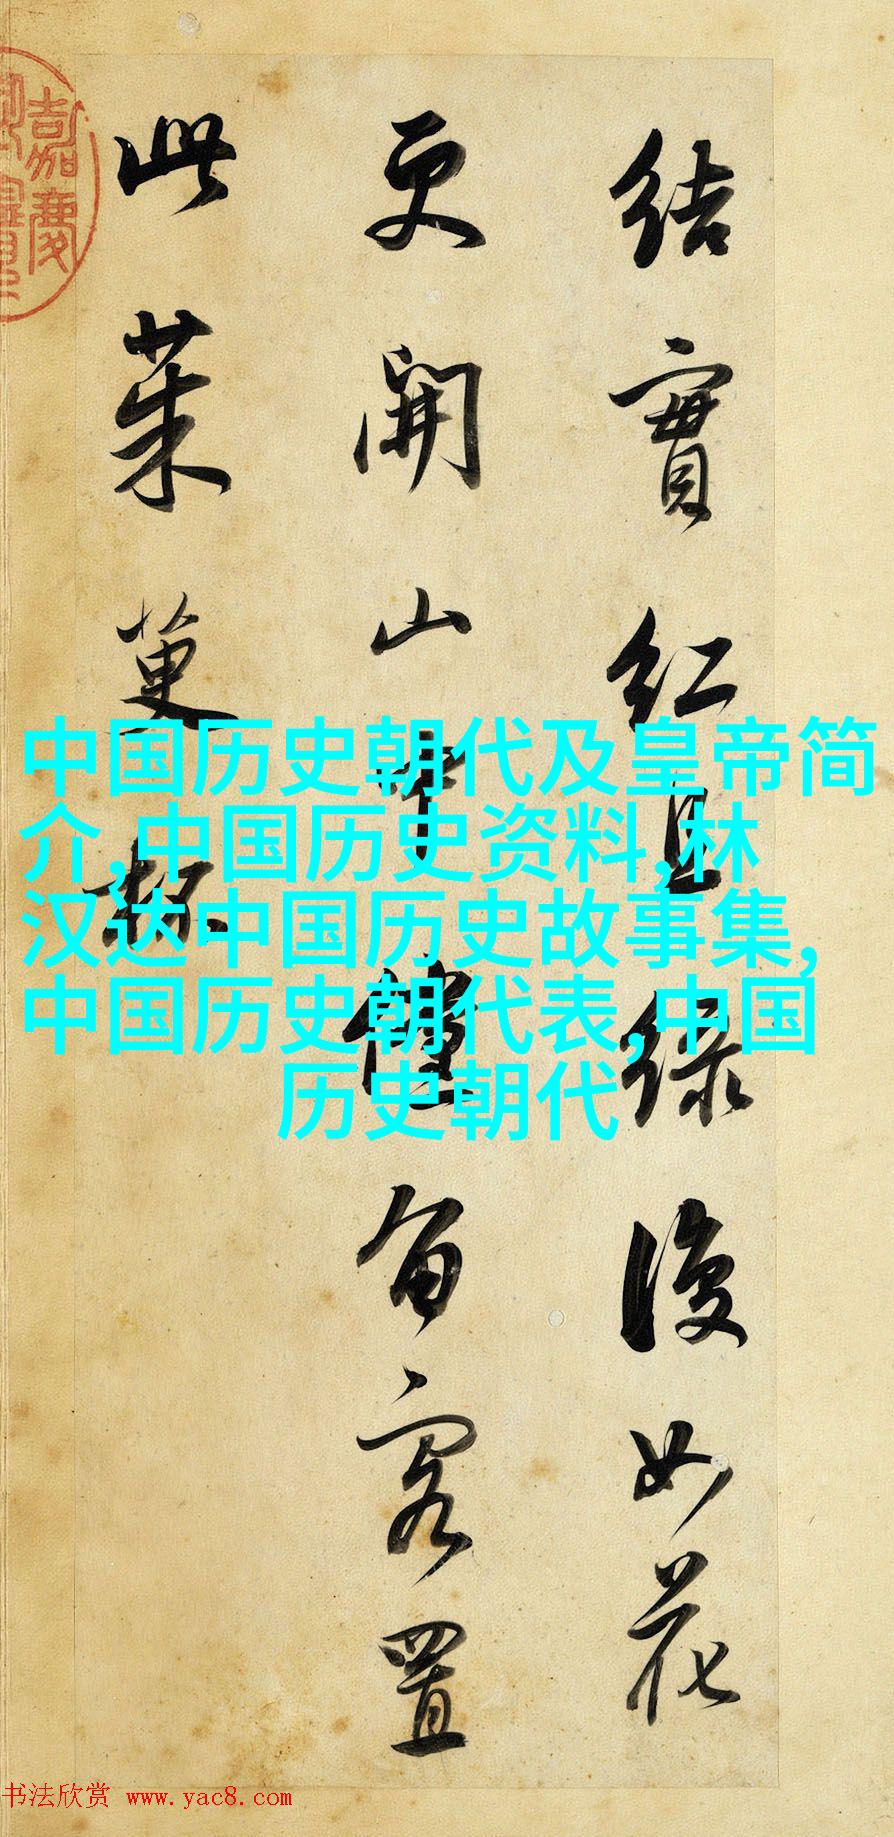 結實紅且綠復如花
更開山中儻留客置
此茱萸杯
嘉慶
中国历史朝代及皇帝简
介,中国历史资料,林
汉达中国历史故事集,
中国历史朝代表,中国
历史朝代
书法欣赏 www.yac8.com